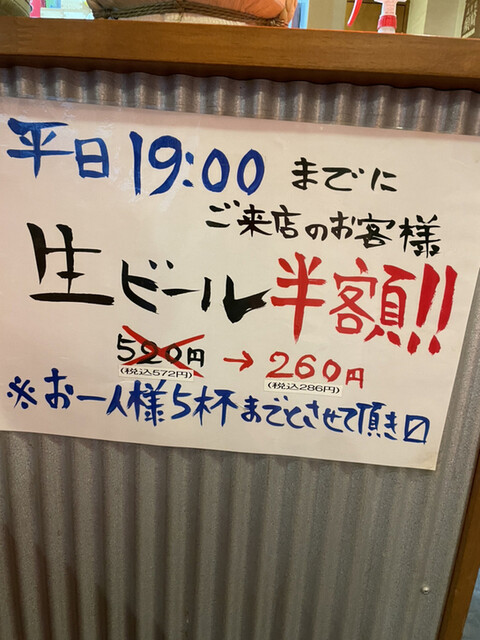 平日19:00 までに
ご来店のお客様
生ビール半額!!
520円 → 260円
(税込572円) (税込286円)
※お一人様5杯までとさせて頂き〼